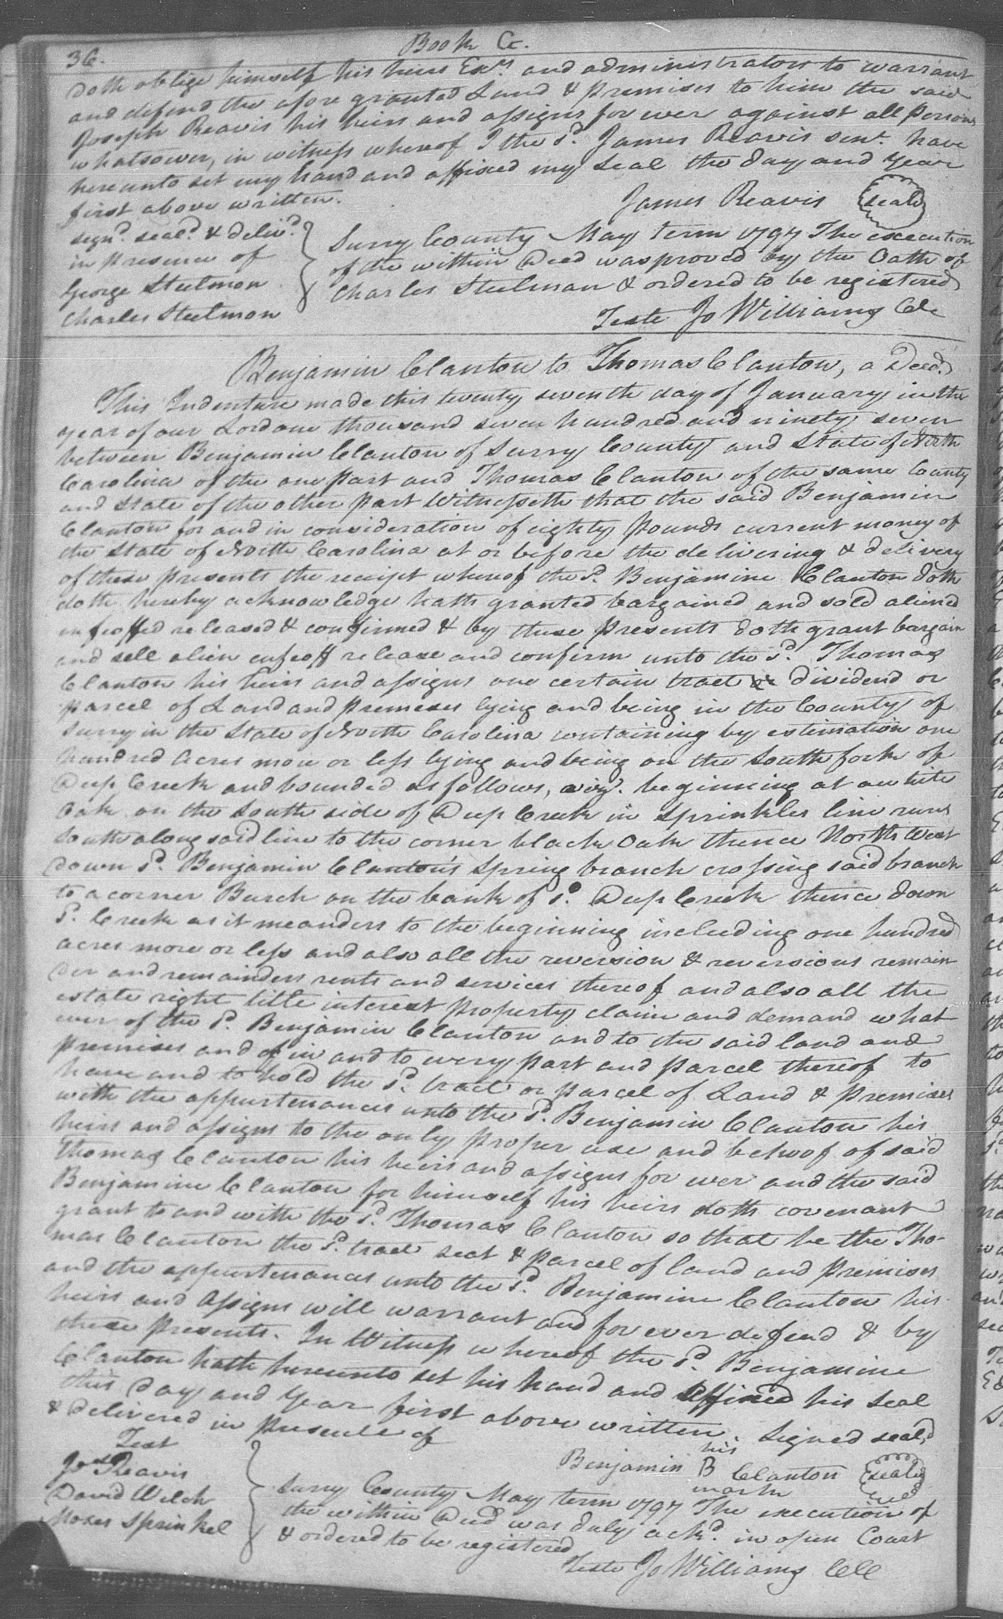 36. Book G.
doth oblige himself his heirs Exrs and administrators to warrant
and defend the afore granted Land & premises to him the said
Joseph Reavis his heirs and assigns for ever against all persons
whatsoever, in witness whereof I the sd. James Reavis senr. have
hereunto set my hand and affixed my seal the day and year
first above written.
James Reavis seal
signd. seald. & delivd.
in presence of
George Steelmon
Charles Steelmon
Surry County May term 1797 The execution
of the within Deed was proved by the Oath of
Charles Steelman & ordered to be registered
Teste Jo Williams Clk
Benjamin Clanton to Thomas Clanton, a Deed,
This Indenture made this twenty seventh day of January in the
year of our Lord one thousand seven hundred and ninety seven
between Benjamin Clanton of Surry County and State of North
Carolina of the one part and Thomas Clanton of the same County
and State of the other part Witnesseth that the said Benjamin
Clanton for and in consideration of eighty pounds current money of
the State of North Carolina at or before the delivering & delivery
of these presents the receipt whereof the sd. Benjamine Clanton doth
doth hereby acknowledge hath granted bargained and sold aliened
enfeoffed released & confirmed & by these presents doth grant bargain
and sell alien enfeoff release and confirm unto the sd. Thomas
Clanton his heirs and assigns one certain tract dividend or
parcel of Land and premises lying and being in the County of
Surry in the State of North Carolina containing by estimation one
hundred acres more or less lying and being on the South fork of
Deep Creek and bounded as follows, viz. beginning at a white
Oak on the South side of Deep Creek in Sprinkles line runs
South along said line to the corner black Oak thence North West
down sd. Benjamin Clanton's Spring branch crossing said branch
to a corner Burch on the bank of sd. Deep Creek thence down
sd. Creek as it meanders to the beginning including one hundred
acres more or less and also all the reversion & reversions remain
der and remainders rents and services thereof and also all the
estate right title interest property claim and demand what
ever of the sd. Benjamin Clanton and to the said land and
premises and of in and to every part and parcel thereof to
have and to hold the sd. tract or parcel of Land & premises
with the appurtenances unto the sd. Benjamin Clanton his
heirs and assigns to the only proper use and behoof of said
Thomas Clanton his heirs and assigns for ever and the said
Benjamine Clanton for himself his heirs doth covenant
grant to and with the sd. Thomas Clanton so that he the Tho-
mas Clanton the sd. tract seat & parcel of land and premises
and the appurtenances unto the sd. Benjamine Clanton his
heirs and assigns will warrant and for ever defend & by
these presents. In Witness whereof the sd. Benjamine
Clanton hath hereunto set his hand and affixed his seal
this day and year first above written. Signed seald
& delivered in presence of
Test
Jos Reavis
David Welch
Moses Sprinkel
Benjamin his B mark Clanton seal
Surry County May term 1797 The execution of
the within Deed was duly ackd. in open Court
& ordered to be registered
Teste Jo Williams Clk